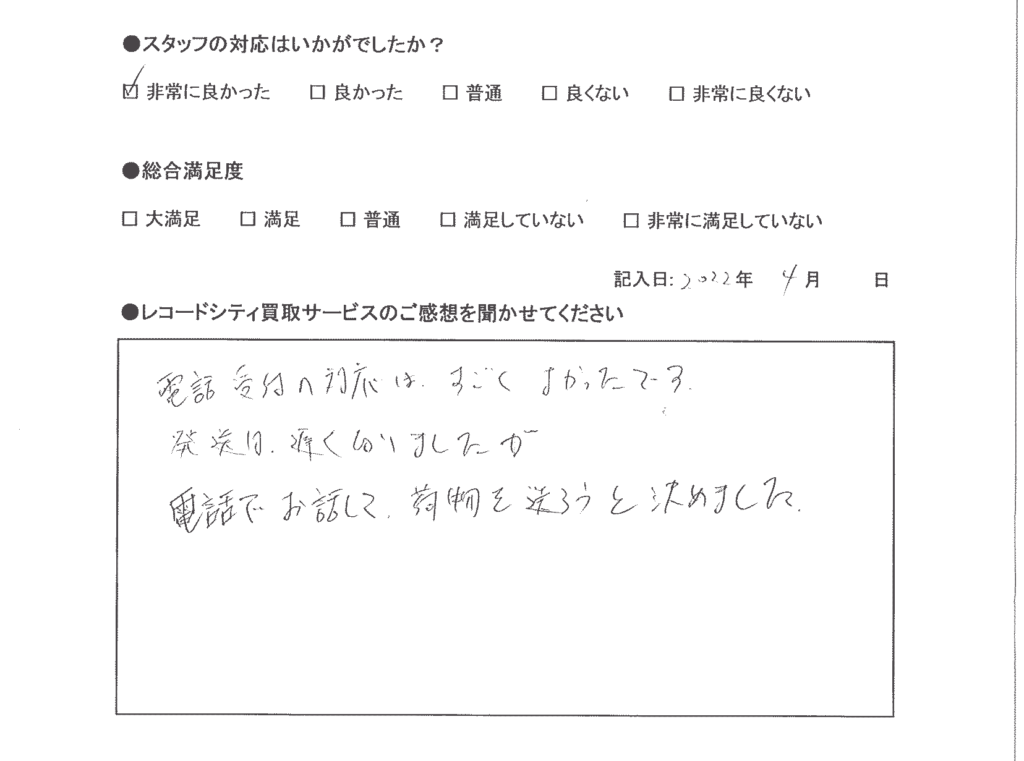 ●スタッフの対応はいかがでしたか？
☑ 非常に良かった □ 良かった □ 普通 □ 良くない □ 非常に良くない
●総合満足度
□ 大満足 □ 満足 □ 普通 □ 満足していない □ 非常に満足していない
記入日:2022年 4月 日
●レコードシティ買取サービスのご感想を聞かせてください
電話受付の対応は、すごくよかったです。
発送は、遅くなりましたが
電話でお話して、荷物を送ろうと決めました。